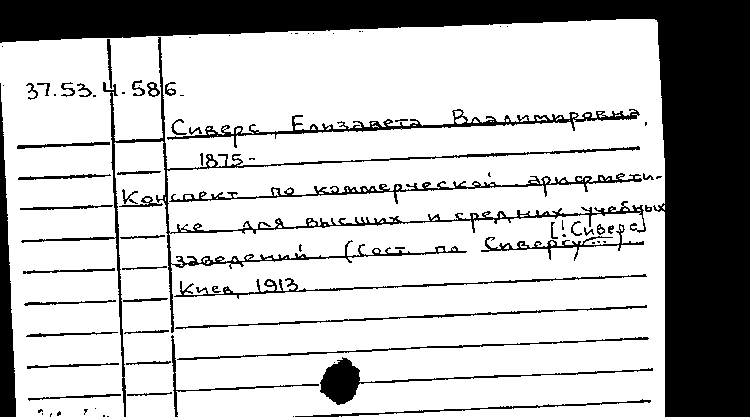 37.53.4.586.
Сиверс, Елизавета Владимировна,
1875-
Конспект по коммерческой арифмети-
ке для высших и средних учебных
[!Сиверс]
заведений. (Сост. по Сиверсу...)
Киев, 1913.